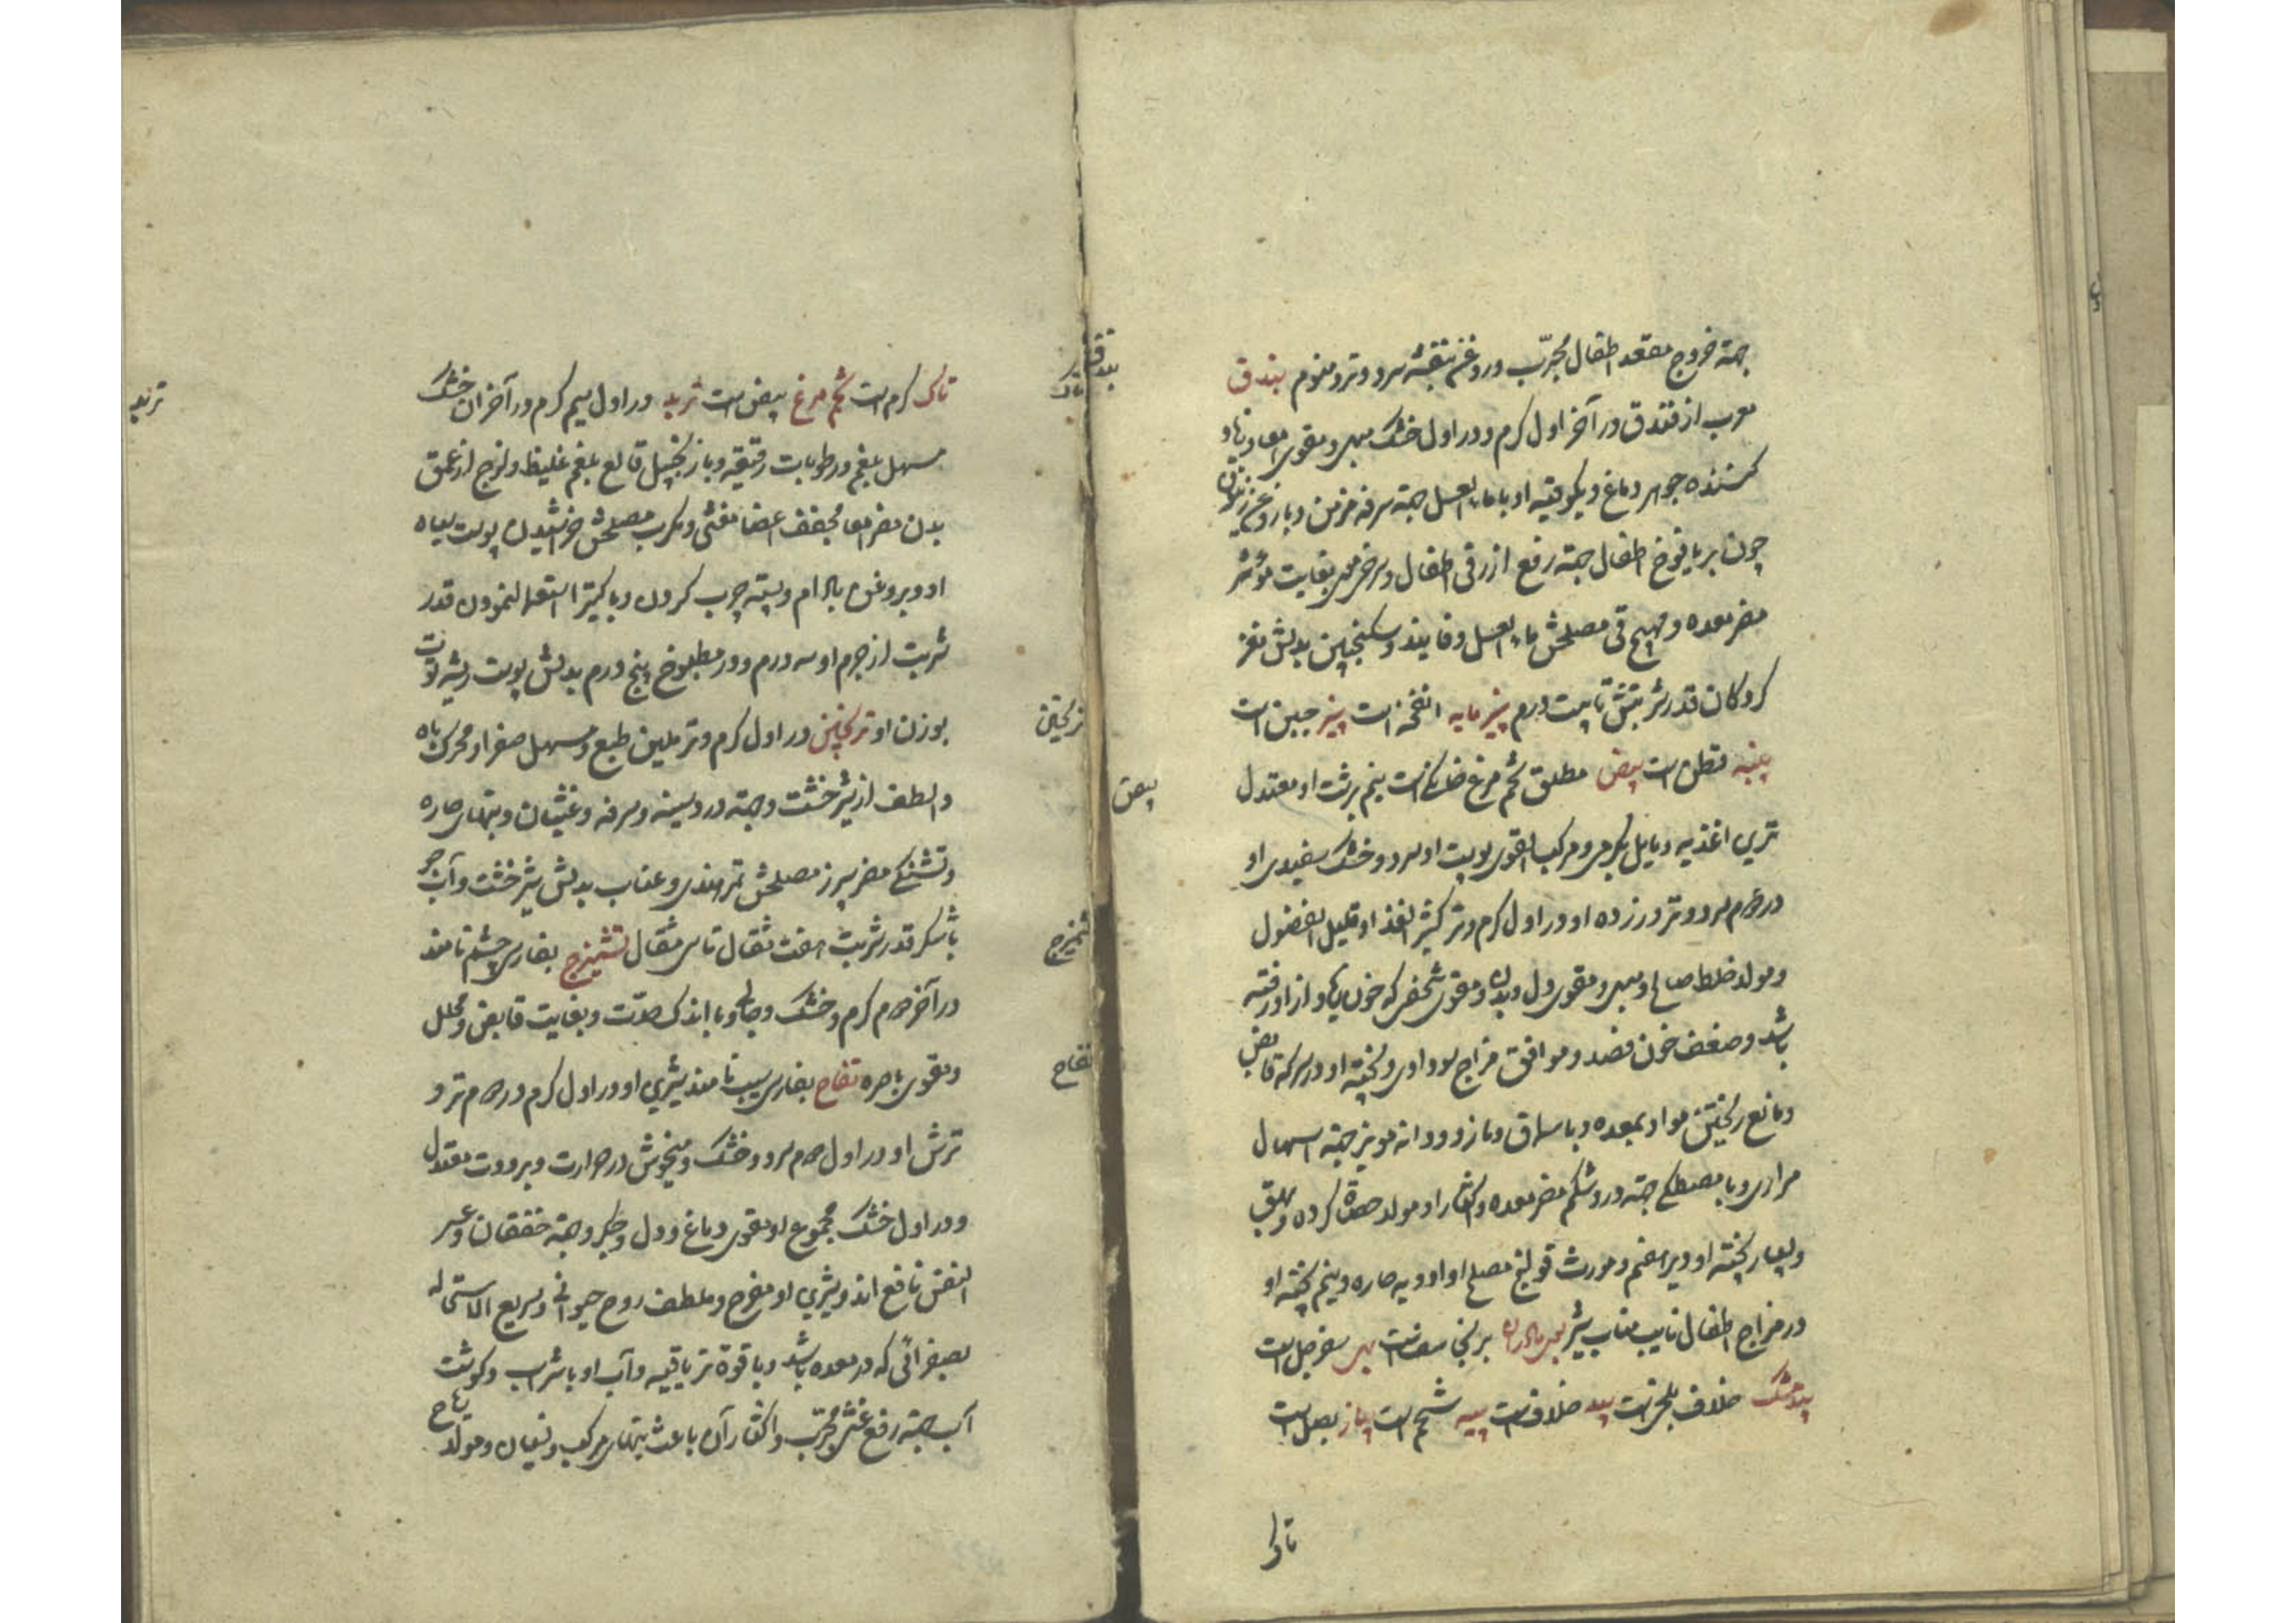 جهة خروج مقعد اطفال مجرّب و روغن بنفشه سرد و تر و منوم بندق
معرب از فندق در آخر اول گرم و در اول خشک مبهی و مقوی امعا و زیاد
کننده جوهر دماغ و یکوقیه او با ماء العسل جهة سرفه مزمن و با روغن زیتون
چون بر یافوخ اطفال جهة رفع ازرقی اطفال و سرخی موی بغایت مؤثر
مضر معده و مهیج قی مصلحش ماء العسل و فانیذ و سکنجبین بدلش مغز
گردکان قدر شربتش تا بیست درم پنیر مایه انفحه است پنیر جبن است
پنبه قطن است بیض مطلق تخم مرغ خانگی است نیم برشت او معتدل
ترین اغذیه و مایل بگرمی و مرکب القوی پوست او سرد و خشک سفیدی او
در دوم سرد و تر و زرده او در اول گرم و تر کثیر الغذا و قلیل الفضول
و مولد خلط صالح و مبهی و مقوی دل و بدن و مقوی شخصی که خون زیاد از او رفته
باشد و ضعف خون فصد و موافق مزاج سوداوی و پخته او در سرکه قابض
و مانع ریختن مواد بمعده و با سماق و مازو و دانه مویز جهة اسهال
مراری و با مصطکی جهة درد شکم مضر معده و اکثار او مولد حصاة گرده و بهق
و بسیار پخته او دیر هضم و مورث قولنج مصلح او ادویه حاره و نیم پخته او
در مزاج اطفال نایب مناب شیر بوی مادران برنجاسف است بهی سفرجل است
بیدمشک خلاف بلخی است بید خلاف است پیه شحم است پیاز بصل است
تاک
بندق
بیض
تاک کرم است تخم مرغ بیض است تربد در اول سیم گرم و در آخر آن خشک
مسهل بلغم و رطوبات رقیقه و با زنجبیل قالع بلغم غلیظ و لزج از عمق
بدن مضر امعا مجفف اعضا مغثی و مکرب مصلحش خراشیدن پوست سیاه
او و بروغن بادام و پسته چرب کردن و با کتیرا استعمال نمودن قدر
شربت از جرم او سه درم و در مطبوخ پنج درم بدلش پوست ریشه توت
بوزن او ترنجبین در اول گرم و تر ملین طبع و مسهل صفرا و محرک باه
و الطف از شیرخشت و جهة درد سینه و سرفه و غثیان و تبهای حاره
و تشنگی مضر سپرز مصلحش تمر هندی و عناب بدلش شیرخشت و آب جو
با شکر قدر شربت هفت مثقال تا سی مثقال تشمیزج بفارسی چشم نامند
در آخر دوم گرم و خشک و جالی و با اندک حدّت و بغایت قابض و محلل
و مقوی باصره تفاح بفارسی سیب نامند شیرین او در اول گرم و در دوم تر و
ترش او در اول دوم سرد و خشک و میخوش در حرارت و برودت معتدل
و در اول خشک مجموع او مقوی دماغ و دل و جگر و جهة خفقان و عسر
النفس نافع اند و شیرین او مفرح و ملطف روح حیوانی و سریع الاستحاله
بصفرائی که در معده باشد و با قوة تریاقیه و آب او با شراب و گوشت
آب جهة رفع غشی مجرّب و اکثار آن باعث تبهای مرکب و نسیان و مولد ریاح
تربد
تاک
ترنجبین
تشمیزج
تفاح